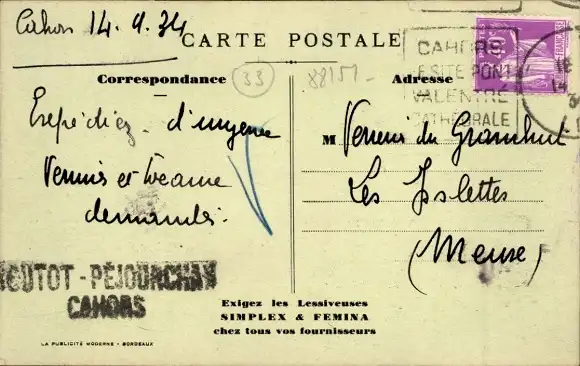 Cahors 14.9.34
CARTE POSTALE
Correspondance
33
88151
Adresse
CAHORS
VALENTRÉ
CATHÉDRALE
40
Expédiez d'urgence
Vernis et
demandés.
M Verrerie du
Les Islettes
(Meuse)
COUTOT-PÉJOURCHAN
CAHORS
Exigez les Lessiveuses
SIMPLEX & FEMINA
chez tous vos fournisseurs
LA PUBLICITÉ MODERNE - BORDEAUX